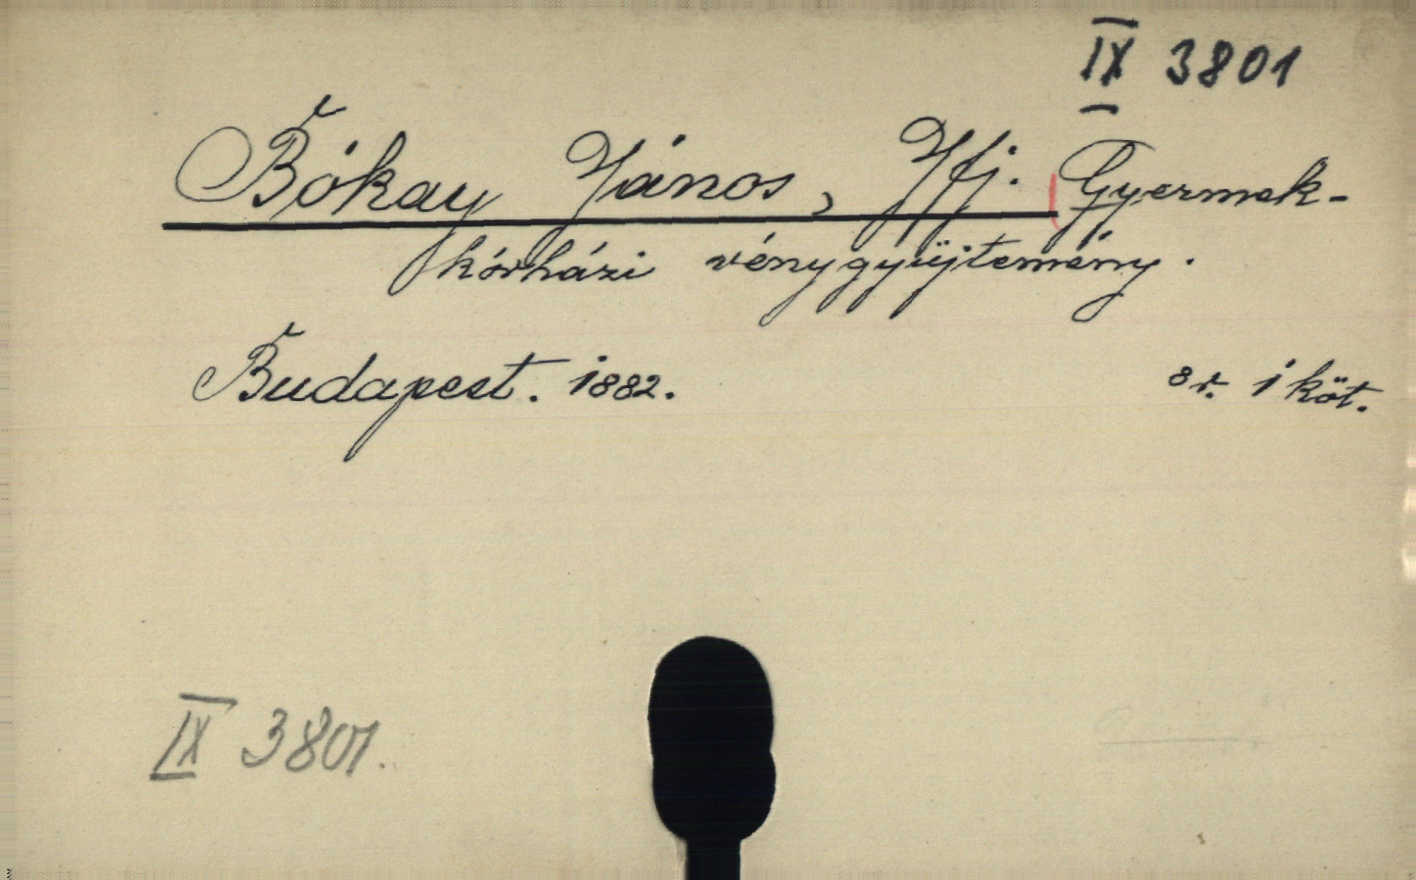 IX 3801
Bókay János, Ifj. Gyermek-
kórházi vénygyüjtemény.
Budapest. 1882. 8r. 1 köt.
IX 3801.